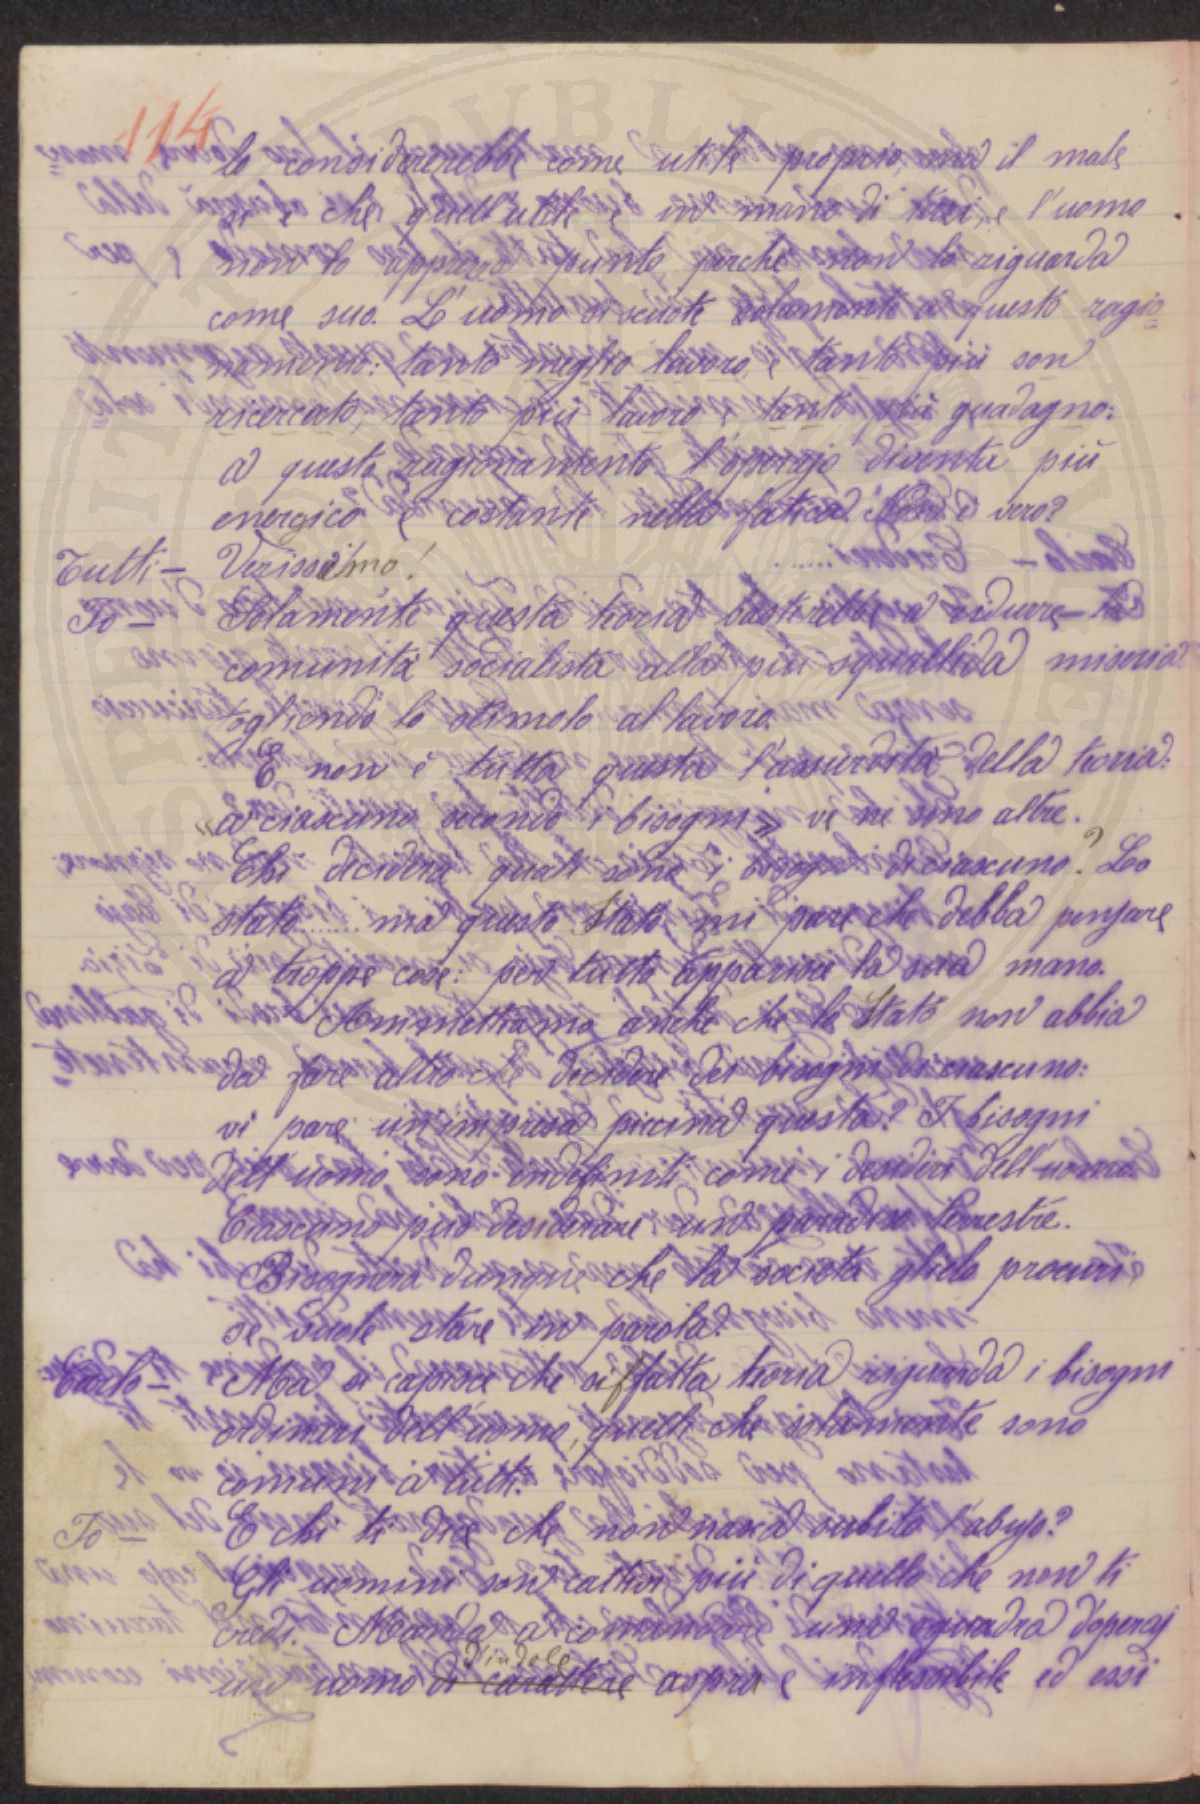 114
lo considererebbe come utile proprio, ma il male
si è che quell'utile è in mano di tutti, e l'uomo
non lo apprezza punto, perchè non lo riguarda
come suo. L'uomo si scuote solamente a questo ragio=
namento: tanto meglio lavoro, e tanto più son
ricercato, tanto più lavoro e tanto più guadagno:
a questo ragionamento l'operajo diventa più
energico e costante nella fatica. Non è vero?
Tutti — Verissimo!
Io — Solamente questa teoria basterebbe a ridurre la
comunità socialista alla più squallida miseria
togliendo lo stimolo al lavoro.
E non è tutta questa l'assurdità della teoria:
«a ciascuno secondo i bisogni» ve ne sono altre.
Chi deciderà quali sono i bisogni di ciascuno? Lo
stato....... ma questo Stato mi pare che debba pensare
a troppe cose: per tutto apparisce la sua mano.
Ammettiamo anche che lo Stato non abbia
da fare altro che decidere dei bisogni di ciascuno:
vi pare un'impresa piccina questa? I bisogni
dell'uomo sono indefiniti come i desideri dell'uomo.
Ciascuno può desiderare un paradiso terrestre.
Bisognerà dunque che la società glielo procuri
se vuole stare in parola.
Carlo — Ma si capisce che siffatta teoria riguarda i bisogni
ordinari dell'uomo, quelli che solamente sono
comuni a tutti.
Io — E chi ti dice che non nasca subito l'abuso?
Gli uomini son cattivi più di quello che non ti
credi. Manda a comandare una squadra d'operaj
d'indole
un uomo di carattere aspra e inflessibile ed essi